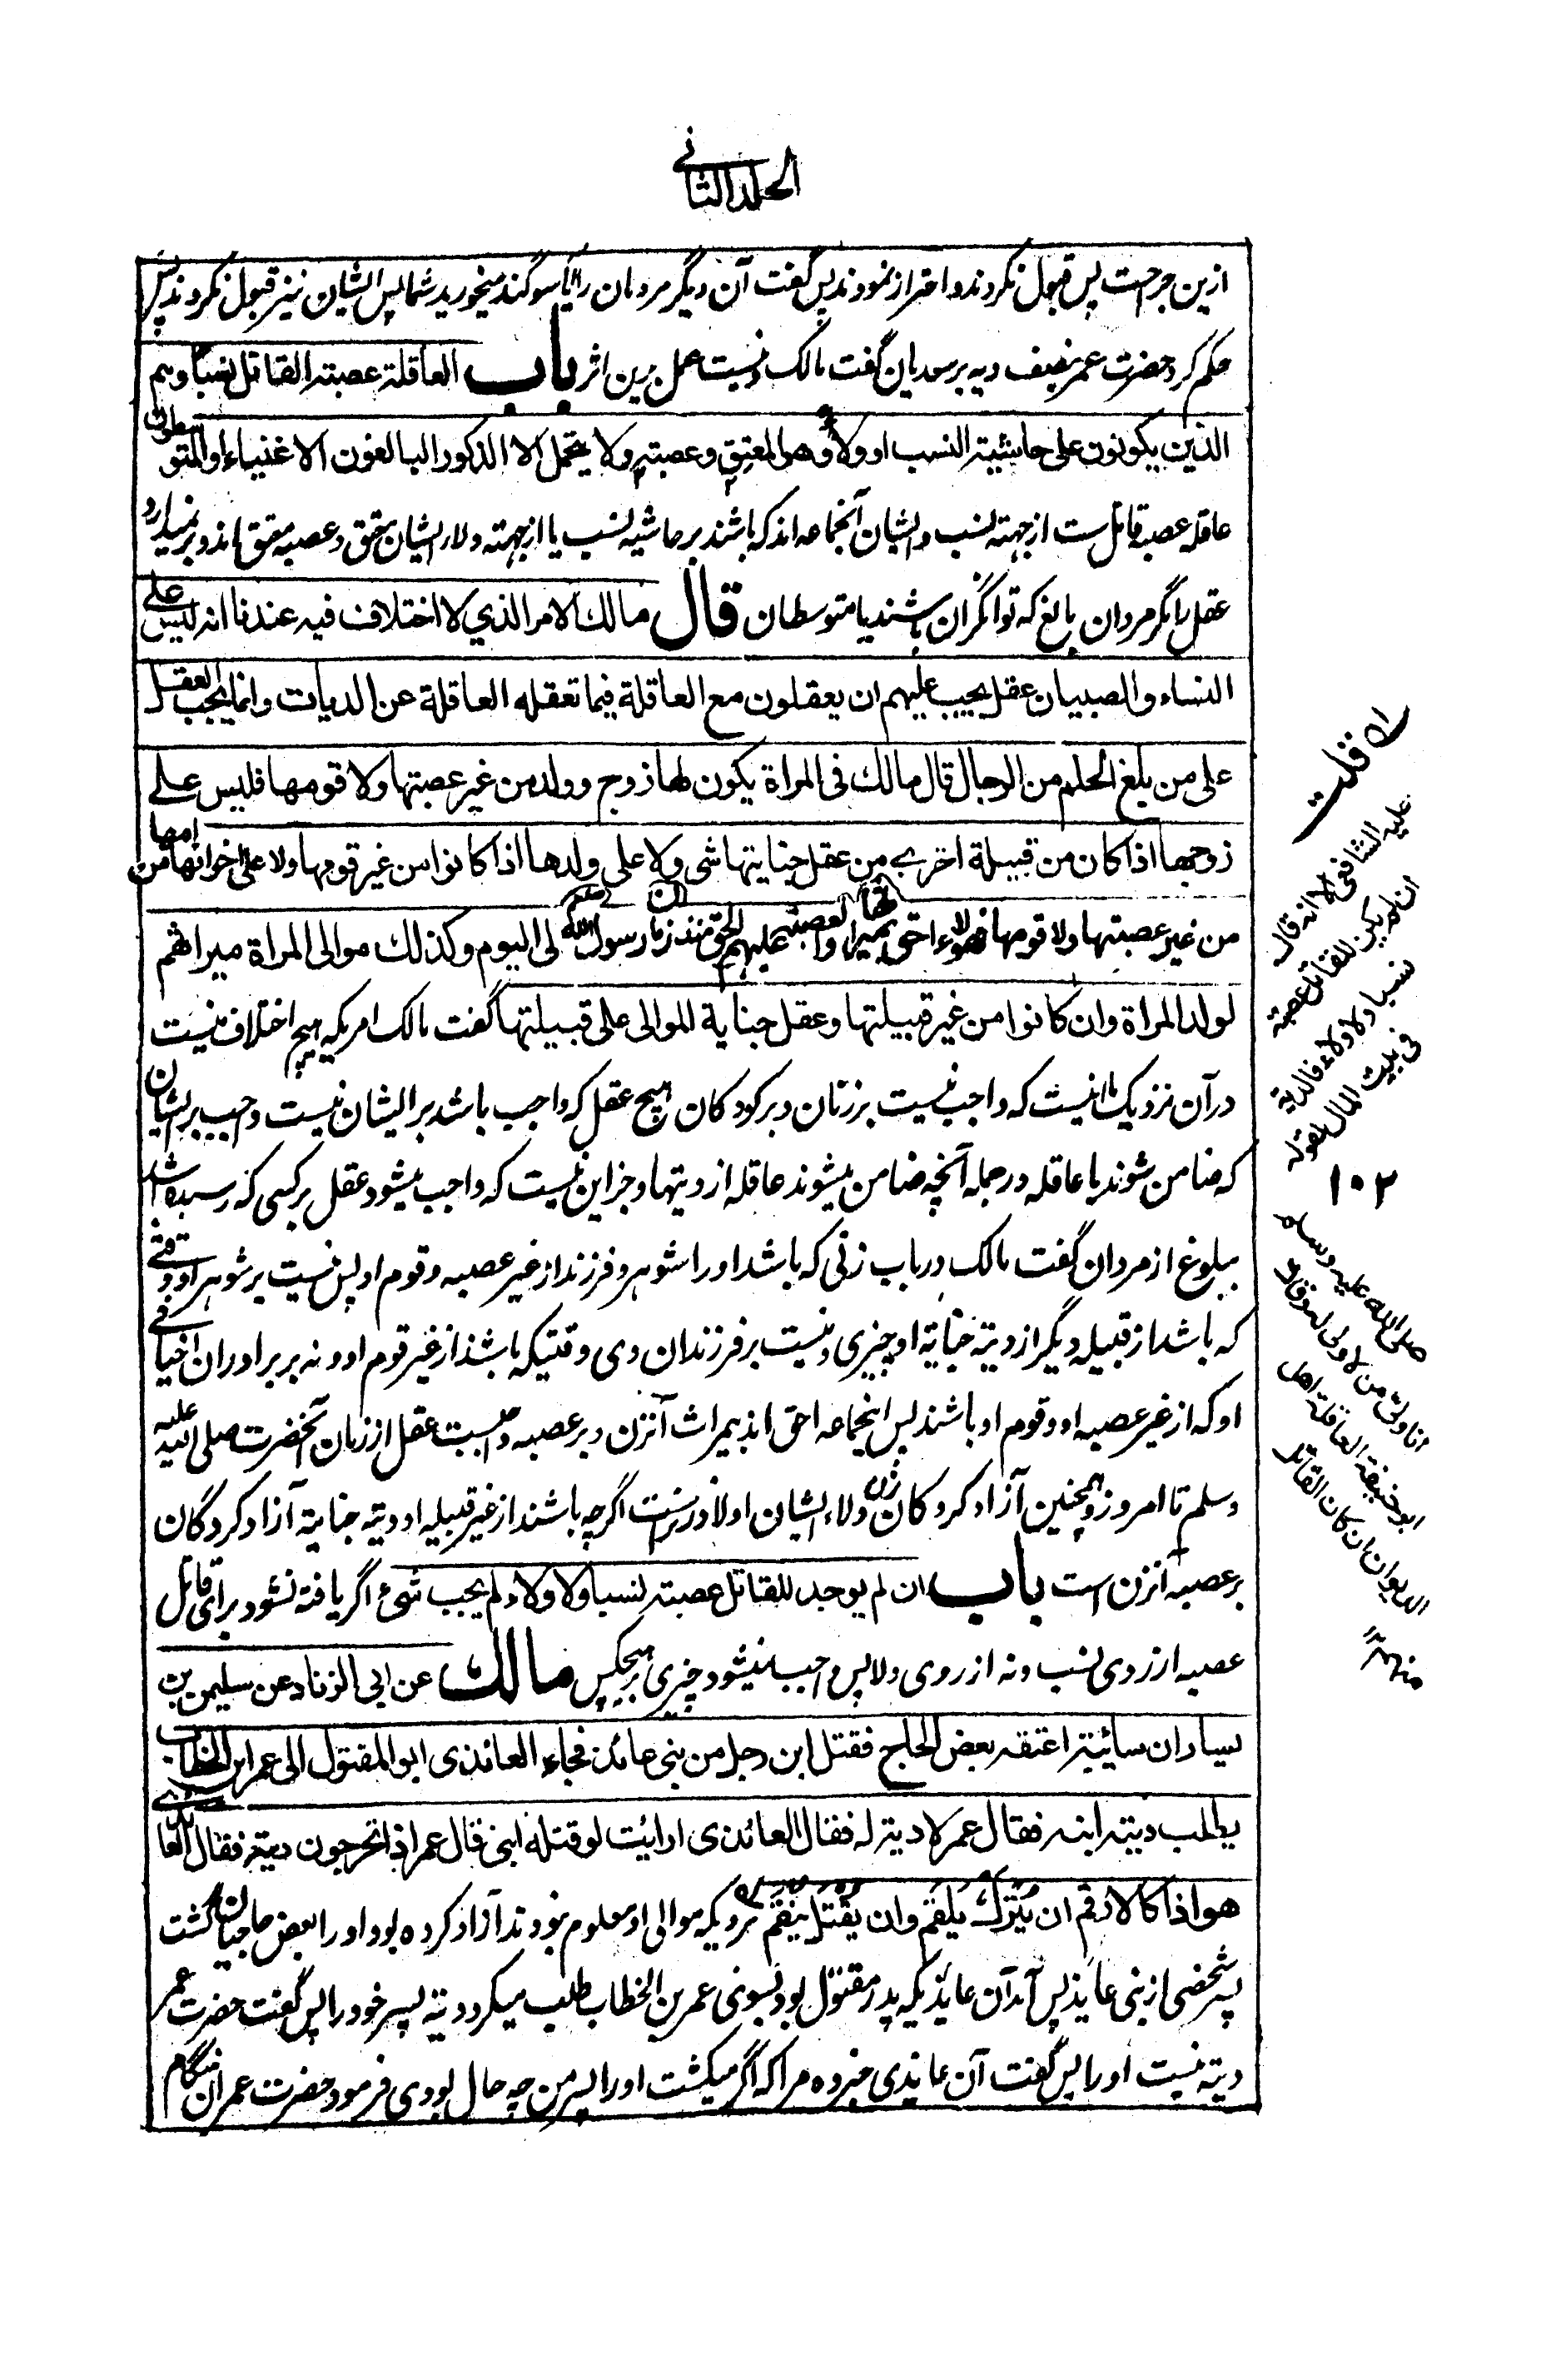 الجلد الثانی
ازین جراحت پس قبول نکردند و احتراز نمودند پس گفت آن دیگر مردمان را آیا سوگند میخورید شما پس ایشان نیز قبول نکردند پس
حکم کرد حضرت عمر بنصف دیه بر سعدیان گفت مالک و نیست عمل برین اثر باب العاقلة عصبة القاتل نسبا وهم
الذین یکونون علی حاشیة النسب او ولاء وهو المعتق وعصبته ولا یتحمل الا الذکور البالغون الاغنیاء او المتوسطون
عاقله عصبه قاتل ست از جهته نسب و ایشان آنجماعه اند که باشند بر حاشیه نسب یا از جهته ولاء و ایشان معتق و عصبه معتق اند و بر نمیدارد
عقل را مگر مردان بالغ که توانگران باشند یا متوسطان قال مالک الامر الذی لا اختلاف فیه عندنا انه لیس علی
النساء والصبیان عقل یجب علیهم ان یعقلون مع العاقلة فیما تعقله العاقلة عن الدیات وانما یجب العقل
علی من بلغ الحلم من الرجال قال مالک فی المراة یکون لها زوج وولد من غیر عصبتها ولا قومها فلیس علی
زوجها اذا کان من قبیلة اخری من عقل جنایتها شی ولا علی ولدها اذا کانوا من غیر قومها ولا علی اخوانها من امها
من غیر عصبتها ولا قومها فهولاء احق بمیراثها والعصبة علیهم العقل منذ زمان رسول الله صلعم الی الیوم وکذلک موالی المراة میراثهم
لولد المراة وان کانوا من غیر قبیلتها وعقل جنایة الموالی علی قبیلتها گفت مالک امریکه هیچ اختلاف نیست
در آن نزدیک ما اینست که واجب نیست بر زنان و بر کودکان هیچ عقل که واجب باشد بر ایشان نیست واجب بر ایشان
که ضامن شوند با عاقله در جمله آنچه ضامن میشوند عاقله از دیتها و جز این نیست که واجب میشود عقل بر کسی که رسیده باشد
ببلوغ از مردان گفت مالک در باب زنی که باشد او را شوهر و فرزند از غیر عصبه و قوم او پس نیست بر شوهر او وقتی
که باشد از قبیله دیگر از دیته جنایة او چیزی و نیست بر فرزندان وی وقتیکه باشند از غیر قوم او و نه بر برادران اخیافی
او که از غیر عصبه او و قوم او باشند پس اینجماعه احق اند بمیراث آنزن و بر عصبه واجبست عقل از زمان آنحضرت صلی الله علیه
وسلم تا امروز و همچنین آزاد کردگان زن ولاء ایشان اولاد زنست اگرچه باشند از غیر قبیله او و دیته جنایته آزاد کردگان
بر عصبه آنزن است باب ان لم یوجد للقاتل عصبة نسبا ولا ولاء لم یجب شئ اگر یافته نشود برای قاتل
عصبه از روی نسب و نه از روی ولا پس واجب نمیشود چیزی بر هیچکس مالک عن ابی الزناد عن سلیمن بن
یسار ان سائبة اعتقه بعض الحاج فقتل ابن رجل من بنی عائذ فجاء العائذی ابو المقتول الی عمر ابن الخطاب
یطلب دیة ابنه فقال عمر لا دیة له فقال العائذی ارایت لو قتله ابنی قال عمر اذا تخرجون دیته فقال العائذی
هو اذا کالارقم ان یترک یلقم وان یقتل ینقم بردیکه موالی او معلوم نبودند آزاد کرده بود او را بعض حاجیان پس کشت
پسر شخصی از بنی عایذ پس آمد آن عایذی که پدر مقتول بود بسوی عمر بن الخطاب طلب میکرد دیته پسر خود را پس گفت حضرت عمر
دیته نیست او را پس گفت آن عایذی خبر ده مرا که اگر میکشت او را پسر من چه حال بودی فرمود حضرت عمر آن هنگام
قلت
علیه الشافعی الا انه قال
ان لم یکن للقاتل عصبة
نسبا ولا ولاء فالدیة
فی بیت المال لقوله
١٠٢
صلی الله علیه وسلم
انا ولی من لا ولی له وقال
ابو حنیفة العاقلة اهل
الدیوان ان کان القاتل
منهم ١٢